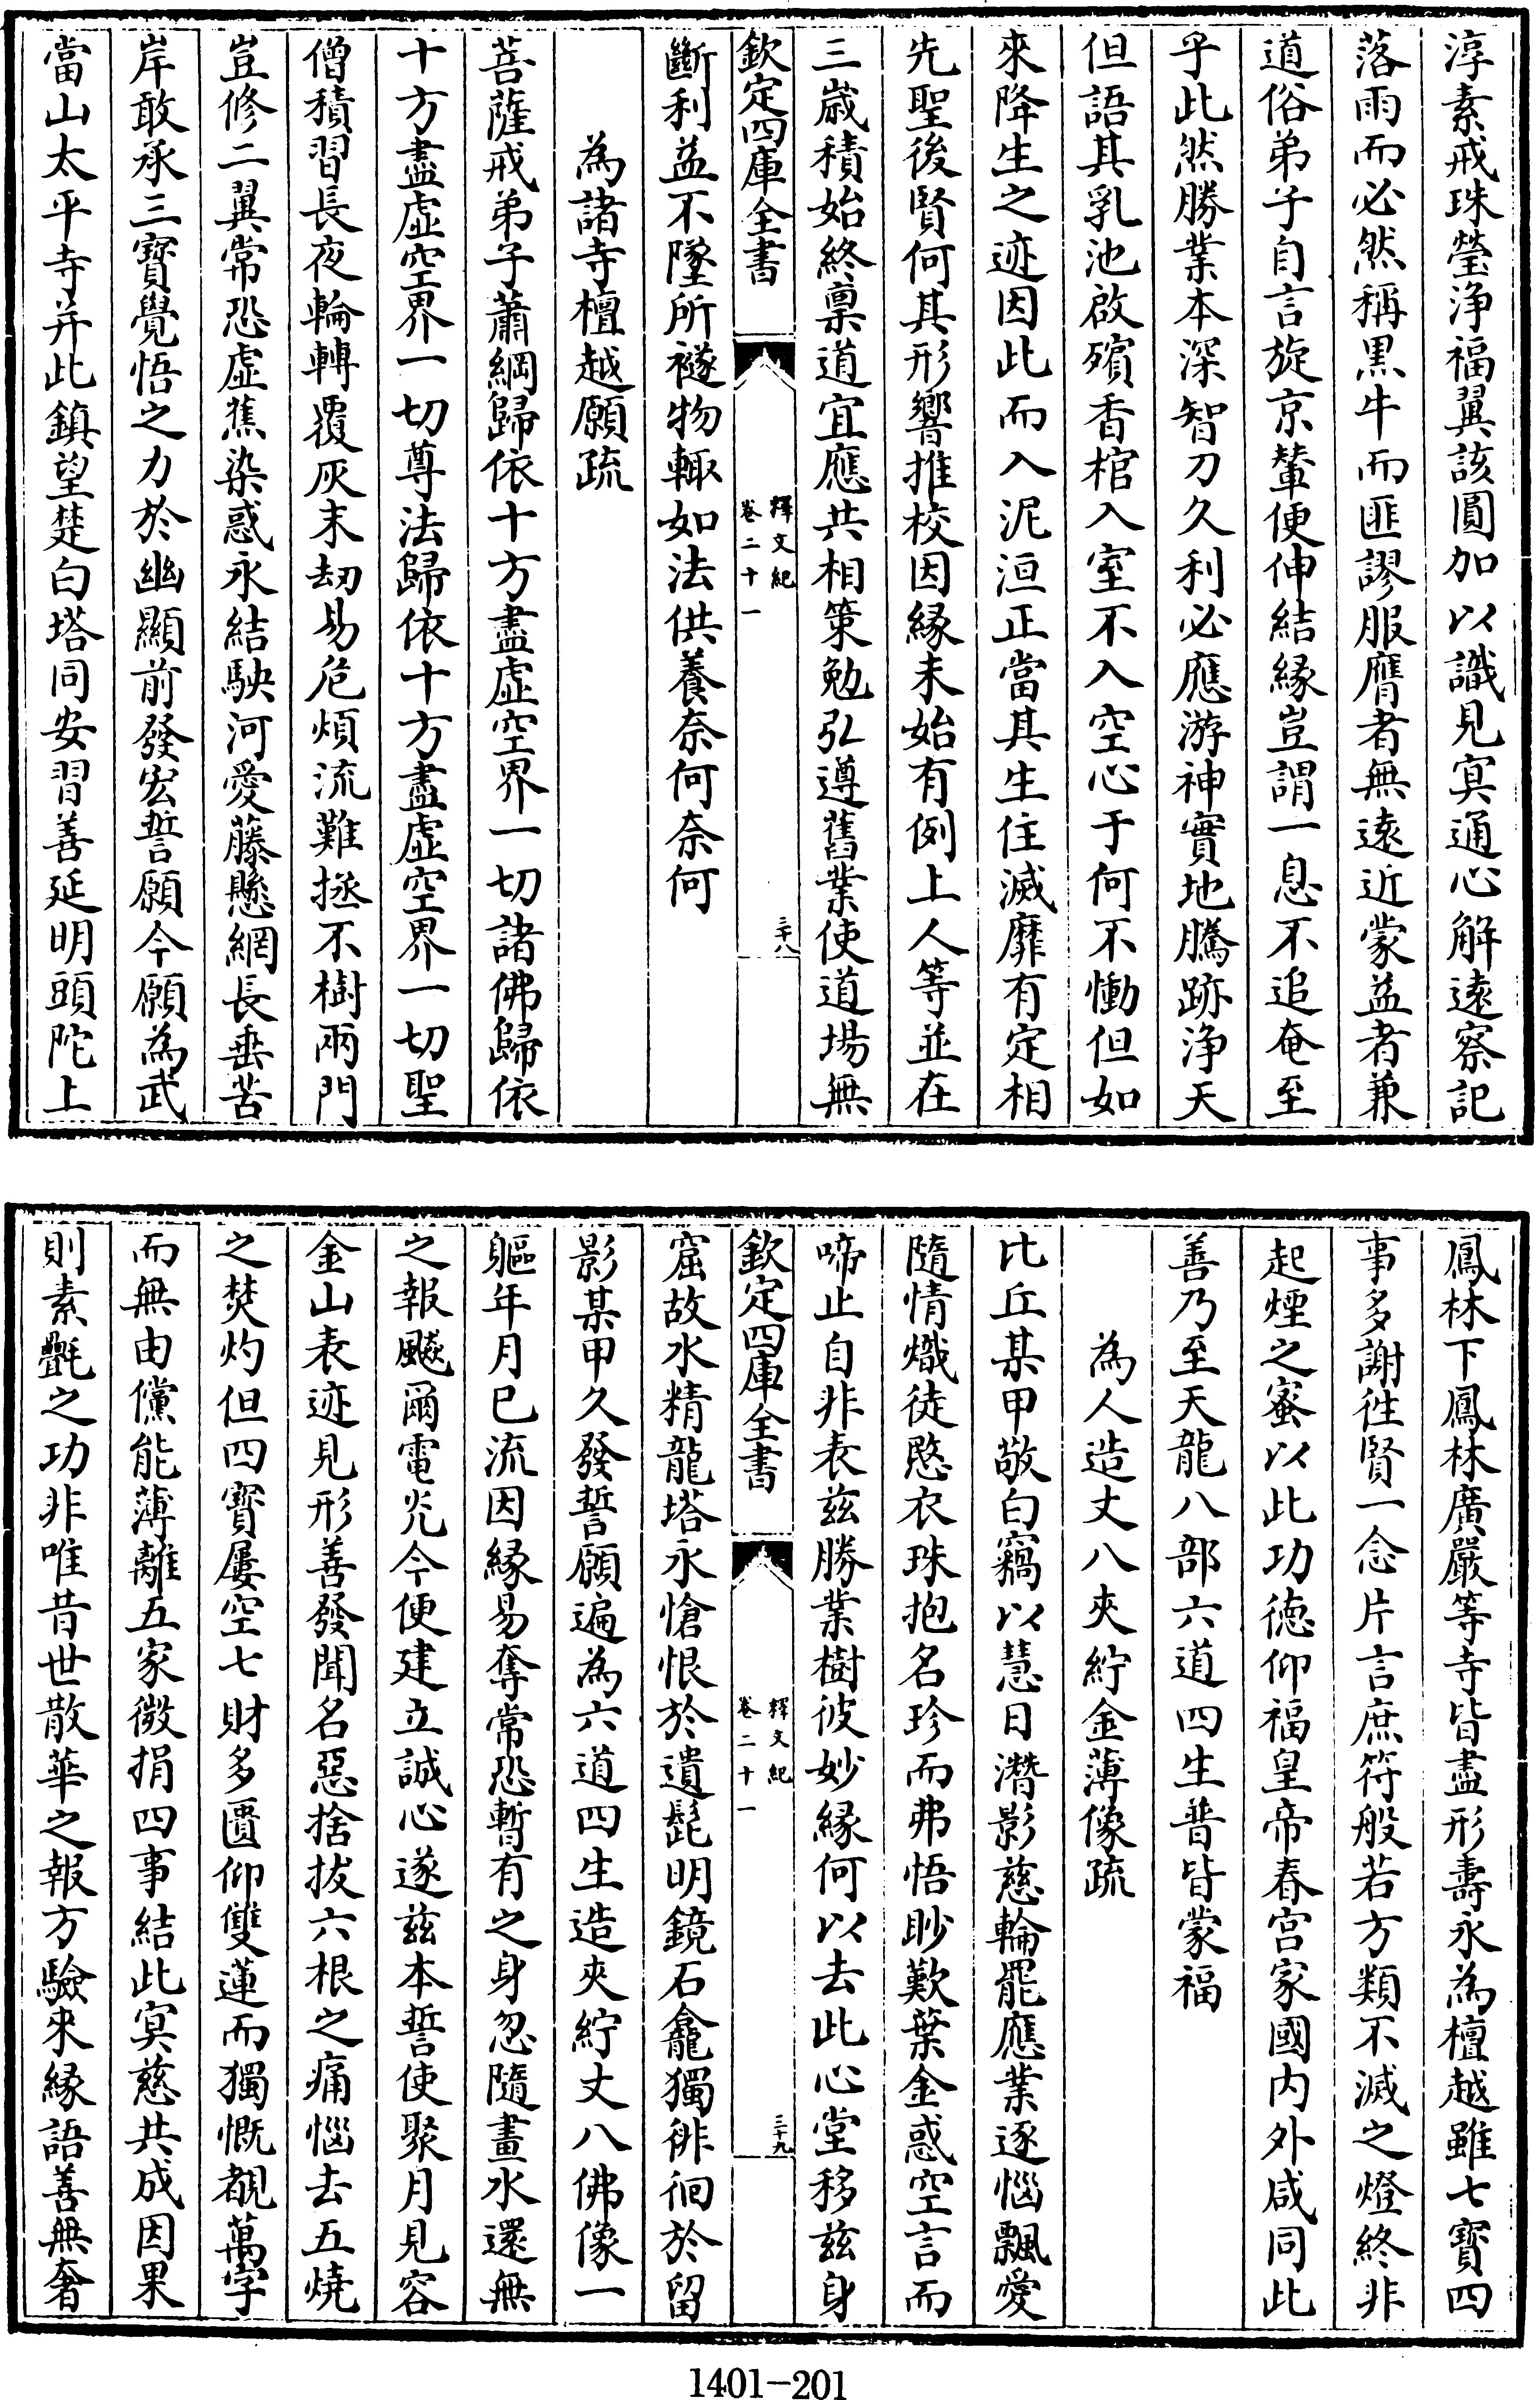 淳素戒珠瑩浄福翼該圓加以識見㝠通心解遠察記
落雨而必然稱黒牛而匪謬服膺者無遠近蒙益者兼
道俗弟子自言旋京輦便伸結縁豈謂一息不追奄至
乎此然勝業本深智刀久利必應游神實地騰跡浄天
但語其乳池啟殯香棺入室不入空心于何不慟但如
來降生之迹因此而入泥洹正當其生住滅靡有定相
先聖後賢何其形響推校因縁未始有例上人等並在
三嵗積始終禀道宜應共相策勉弘遵舊業使道場無
欽定四庫全書
釋文紀
卷二十一
三十八
斷利益不墜所襚物輙如法供養奈何奈何
為諸寺檀越願疏
菩薩戒弟子蕭綱歸依十方盡虚空界一切諸佛歸依
十方盡虚空界一切尊法歸依十方盡虚空界一切聖
僧積習長夜輪轉覆灰末刼易危煩流難拯不樹兩門
豈修二翼常恐虚蕉染惑永結駃河愛藤懸網長垂苦
岸敢承三寳覺悟之力於幽顯前發宏誓願今願為武
當山太平寺并此鎮望楚白塔同安習善延明頭陀上
鳳林下鳳林廣嚴等寺皆盡形壽永為檀越雖七寳四
事多謝徃賢一念片言庶符般若方類不滅之燈終非
起煙之蜜以此功德仰福皇帝春宫家國内外咸同此
善乃至天龍八部六道四生普皆蒙福
為人造丈八夾紵金薄像疏
比丘某甲敬白竊以慧日潛影慈輪罷應業逐惱飄愛
隨情熾徒愍衣珠抱名珍而弗悟眇歎葉金惑空言而
啼止自非表兹勝業樹彼妙縁何以去此心堂移兹身
欽定四庫全書
釋文紀
卷二十一
三十九
窟故水精龍塔永愴恨於遺髭明鏡石龕獨徘徊於留
影某甲久發誓願遍為六道四生造夾紵丈八佛像一
軀年月已流因縁易奪常恐暫有之身忽隨畫水還無
之報飈爾電光今便建立誠心遂兹本誓使聚月見容
金山表迹見形善發聞名惡捨拔六根之痛惱去五燒
之焚灼但四寳屢空七財多匱仰雙蓮而獨慨覩萬字
而無由儻能薄離五家微捐四事結此㝠慈共成因果
則素㲲之功非唯昔世散華之報方驗來縁語善無奢
1401-201